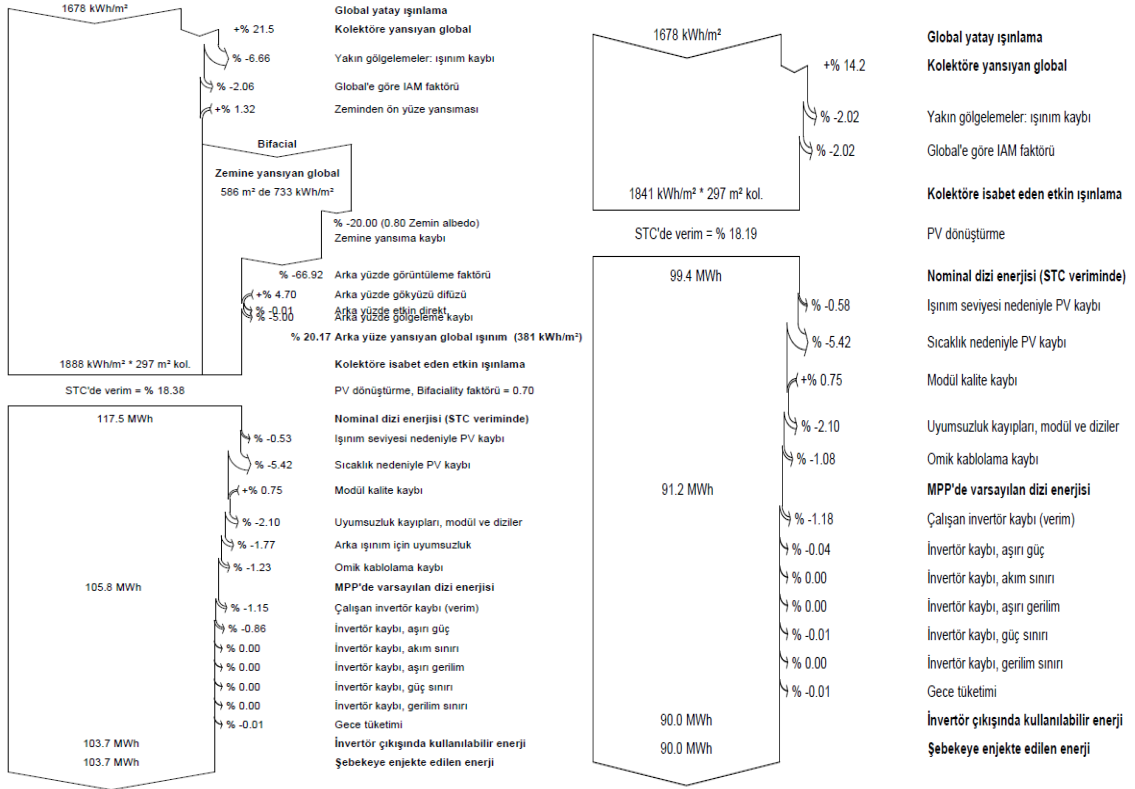 1678 kWh/m² Global yatay ışınlama
+% 21.5 Kolektöre yansıyan global
% -6.66 Yakın gölgelemeler: ışınım kaybı
% -2.06 Global'e göre IAM faktörü
+% 1.32 Zeminden ön yüze yansıması
Bifacial
Zemine yansıyan global
586 m² de 733 kWh/m²
% -20.00 (0.80 Zemin albedo)
Zemine yansıma kaybı
% -66.92 Arka yüzde görüntüleme faktörü
+% 4.70 Arka yüzde gökyüzü difüzü
% -0.01 Arka yüzde etkin direkt
% -5.00 Arka yüzde gölgeleme kaybı
% 20.17 Arka yüze yansıyan global ışınım (381 kWh/m²)
1888 kWh/m² * 297 m² kol. Kolektöre isabet eden etkin ışınlama
STC'de verim = % 18.38 PV dönüştürme, Bifaciality faktörü = 0.70
117.5 MWh Nominal dizi enerjisi (STC veriminde)
% -0.53 Işınım seviyesi nedeniyle PV kaybı
% -5.42 Sıcaklık nedeniyle PV kaybı
+% 0.75 Modül kalite kaybı
% -2.10 Uyumsuzluk kayıpları, modül ve diziler
% -1.77 Arka ışınım için uyumsuzluk
% -1.23 Omik kablolama kaybı
105.8 MWh MPP'de varsayılan dizi enerjisi
% -1.15 Çalışan invertör kaybı (verim)
% -0.86 İnvertör kaybı, aşırı güç
% 0.00 İnvertör kaybı, akım sınırı
% 0.00 İnvertör kaybı, aşırı gerilim
% 0.00 İnvertör kaybı, güç sınırı
% 0.00 İnvertör kaybı, gerilim sınırı
% -0.01 Gece tüketimi
103.7 MWh İnvertör çıkışında kullanılabilir enerji
103.7 MWh Şebekeye enjekte edilen enerji
1678 kWh/m² Global yatay ışınlama
+% 14.2 Kolektöre yansıyan global
% -2.02 Yakın gölgelemeler: ışınım kaybı
% -2.02 Global'e göre IAM faktörü
1841 kWh/m² * 297 m² kol. Kolektöre isabet eden etkin ışınlama
STC'de verim = % 18.19 PV dönüştürme
99.4 MWh Nominal dizi enerjisi (STC veriminde)
% -0.58 Işınım seviyesi nedeniyle PV kaybı
% -5.42 Sıcaklık nedeniyle PV kaybı
+% 0.75 Modül kalite kaybı
% -2.10 Uyumsuzluk kayıpları, modül ve diziler
% -1.08 Omik kablolama kaybı
91.2 MWh MPP'de varsayılan dizi enerjisi
% -1.18 Çalışan invertör kaybı (verim)
% -0.04 İnvertör kaybı, aşırı güç
% 0.00 İnvertör kaybı, akım sınırı
% 0.00 İnvertör kaybı, aşırı gerilim
% -0.01 İnvertör kaybı, güç sınırı
% 0.00 İnvertör kaybı, gerilim sınırı
% -0.01 Gece tüketimi
90.0 MWh İnvertör çıkışında kullanılabilir enerji
90.0 MWh Şebekeye enjekte edilen enerji